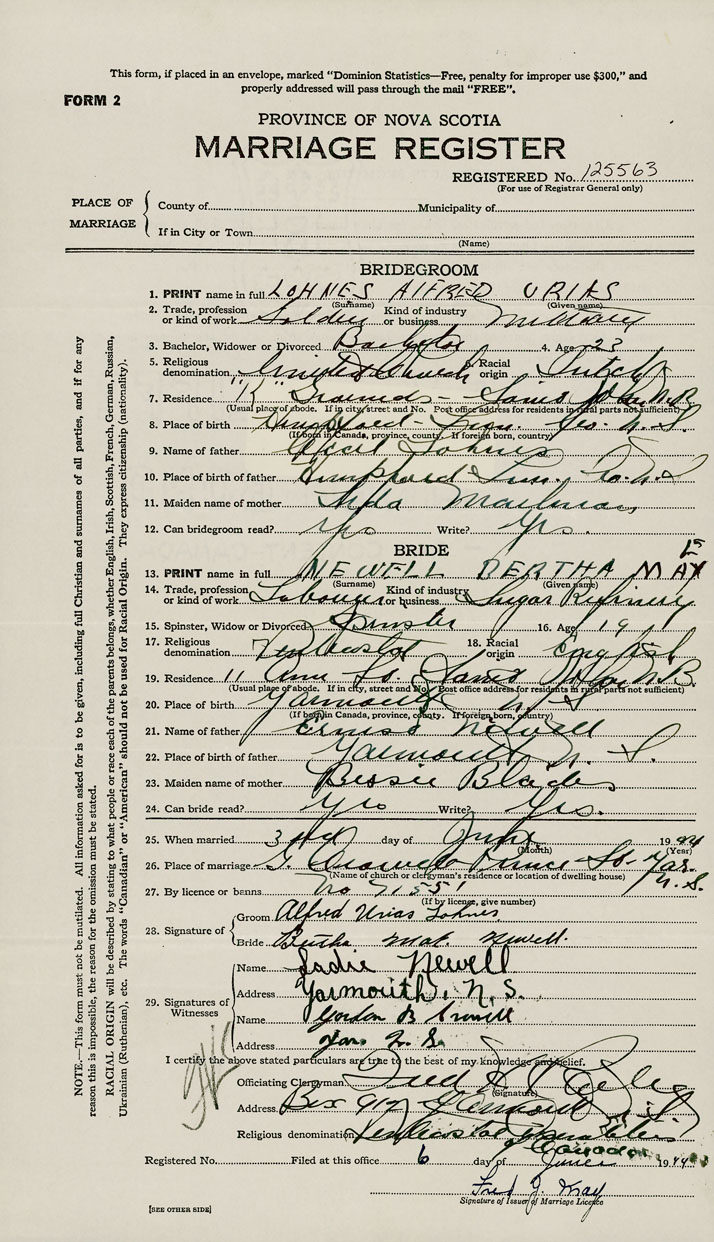 This form, if placed in an envelope, marked "Dominion Statistics—Free, penalty for improper use $300," and
properly addressed will pass through the mail "FREE".
FORM 2
PROVINCE OF NOVA SCOTIA
MARRIAGE REGISTER
REGISTERED No. 125563
(For use of Registrar General only)
PLACE OF MARRIAGE
County of Municipality of
If in City or Town
(Name)
BRIDEGROOM
1. PRINT name in full LOHNES ALFRED URIAS
(Surname) (Given name)
2. Trade, profession or kind of work Soldier Kind of industry or business Military
3. Bachelor, Widower or Divorced Bachelor 4. Age 23
5. Religious denomination United Church 6. Racial origin Dutch
7. Residence "K" Grounds - Saint John N.B
(Usual place of abode. If in city, street and No. Post office address for residents in rural parts not sufficient)
8. Place of birth Co. N. S
(If born in Canada, province, county. If foreign born, country)
9. Name of father Lohnes
10. Place of birth of father Co. N. S
11. Maiden name of mother Mailman
12. Can bridegroom read? Yes Write? Yes.
BRIDE
13. PRINT name in full NEWELL BERTHA MAY
(Surname) (Given name)
14. Trade, profession or kind of work Labourer Kind of industry or business Sugar Refinery
15. Spinster, Widow or Divorced Spinster 16. Age 19
17. Religious denomination 18. Racial origin English
19. Residence 11 St. Saint John N.B.
(Usual place of abode. If in city, street and No. Post office address for residents in rural parts not sufficient)
20. Place of birth Yarmouth N. S
(If born in Canada, province, county. If foreign born, country)
21. Name of father Newell
22. Place of birth of father Yarmouth N. S.
23. Maiden name of mother Bessie Blades
24. Can bride read? Yes Write? Yes.
25. When married 3rd day of June 1944
(Month) (Year)
26. Place of marriage Prince St. Yar. N. S.
(Name of church or clergyman's residence or location of dwelling house)
27. By licence or banns No 71551
(If by license, give number)
28. Signature of
Groom Alfred Urias Lohnes
Bride Bertha May Newell.
29. Signatures of Witnesses
Name Sadie Newell
Address Yarmouth, N. S.
Name Gordon B
Address Yar. N. S.
I certify the above stated particulars are true to the best of my knowledge and belief.
Officiating Clergyman Fred
(Signature)
Address Box 917 Yarmouth N. S
Religious denomination
of Canada
Registered No. Filed at this office 6 day of June 1944
Fred J. May
Signature of Issuer of Marriage Licence
[SEE OTHER SIDE]
NOTE.—This form must not be mutilated. All information asked for is to be given, including full Christian and surnames of all parties, and if for any
reason this is impossible, the reason for the omission must be stated.
RACIAL ORIGIN will be described by stating to what people or race each of the parents belongs, whether English, Irish, Scottish, French, German, Russian,
Ukrainian (Ruthenian), etc. The words "Canadian" or "American" should not be used for Racial Origin. They express citizenship (nationality).